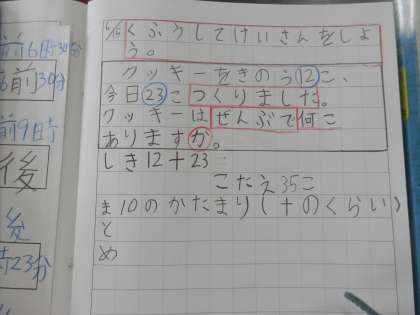 前6時30分
午前30分
前9時
後
後
時23分
6/15 くふうしてけいさんをしよ
う。
クッキーをきのう12こ、
今日23こつくりました。
クッキーはぜんぶで何こ
ありますか。
しき12+23
こたえ35こ
ま10のかたまり(十のくらい)
と
め